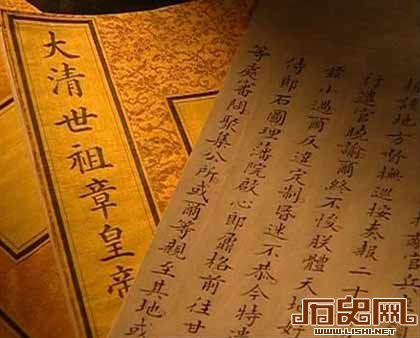 大清世祖章皇帝
章官兵
地方督撫巡按奏報二十
行遣官曉諭爾終不悛朕體天地好
小過爾反違定制昏迷不恭今特遣
侍郎石圖理藩院啟心郎鼐格前往甘
等處審問聚集公所或爾等親至其地或
历史网
WWW.LISHI.NET